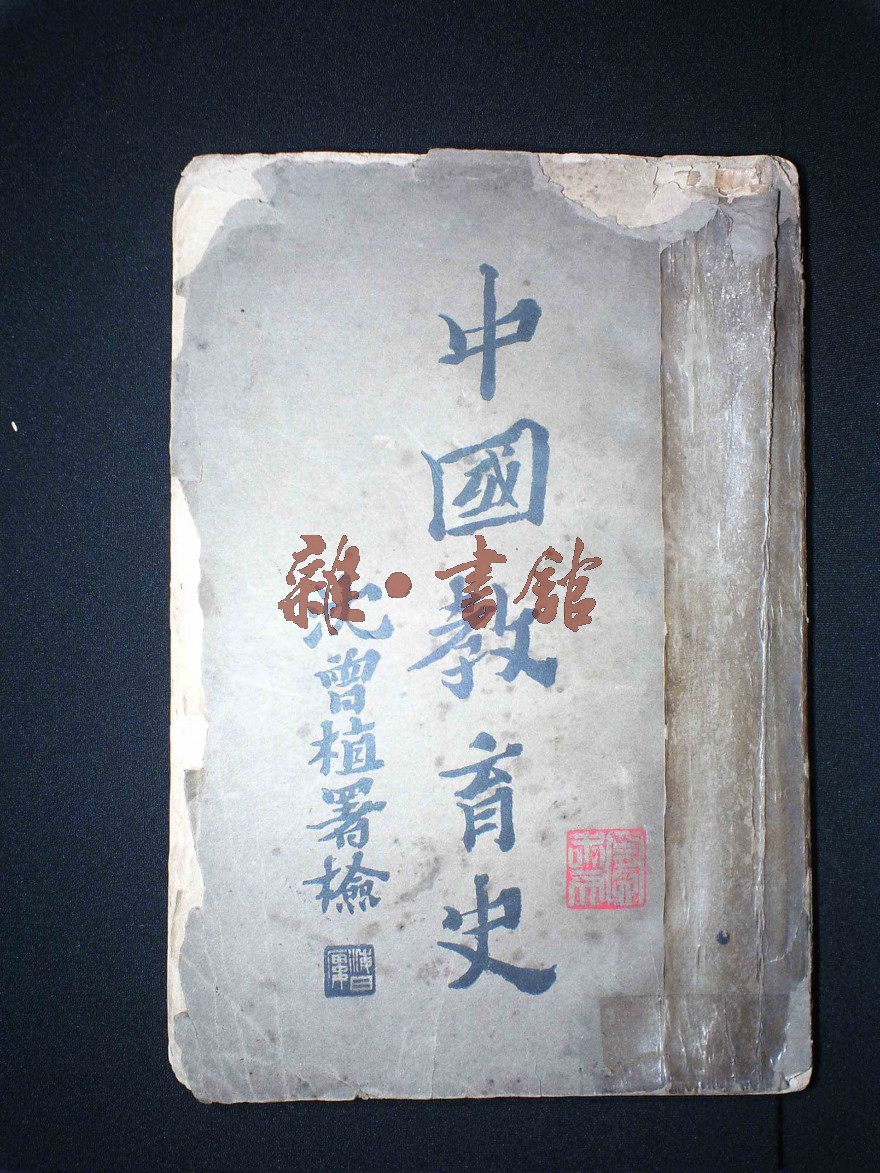 中國教育史
沈曾植署檢
海日樓
雜·書館